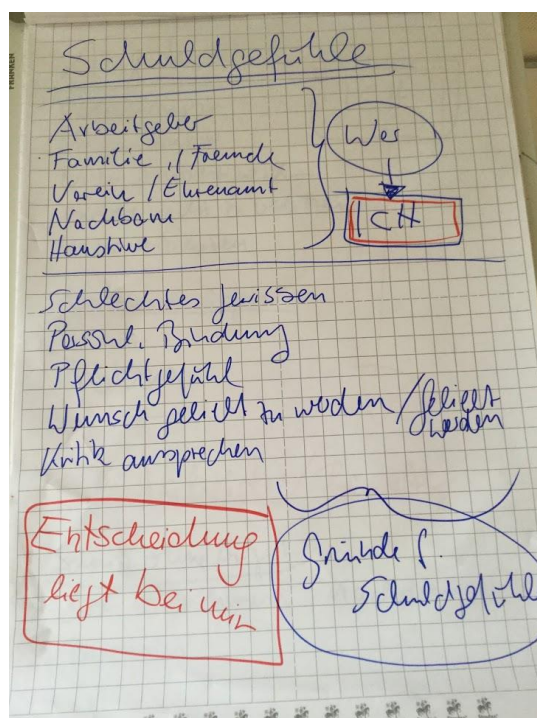 Schuldgefühle
Arbeitgeber
Familie / Freunde
Verein / Ehrenamt
Nachbarn
Haustiere
Wer
ICH
Schlechtes Gewissen
Persönl. Bindung
Pflichtgefühl
Wunsch geliebt zu werden / geliebt werden
Kritik aussprechen
Entscheidung
liegt bei mir
Gründe f.
Schuldgefühl